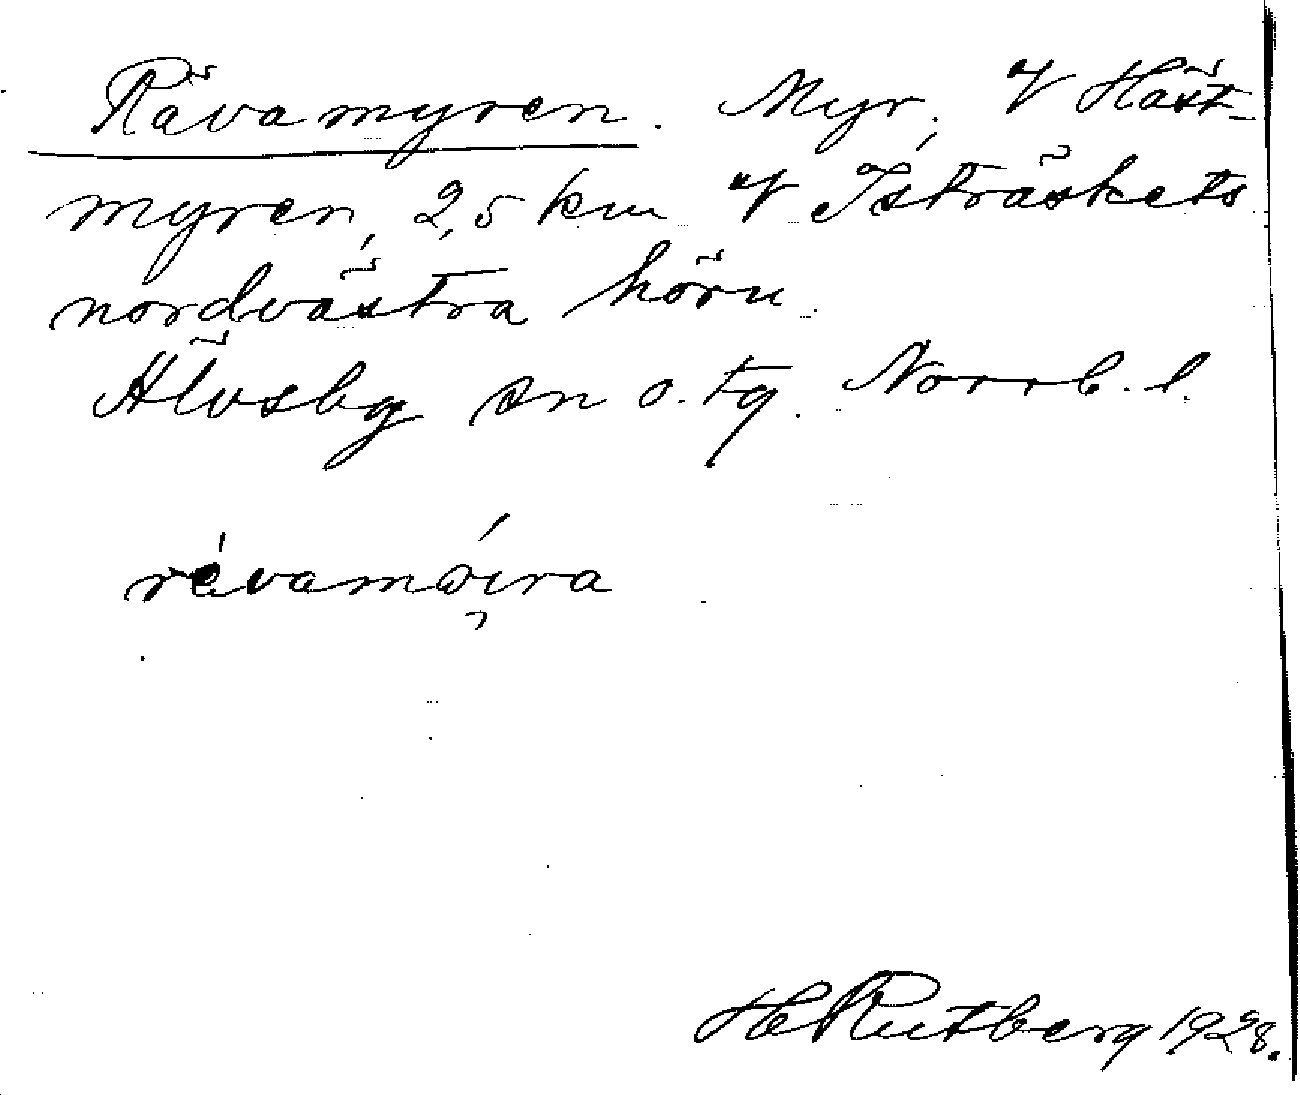 Rävamyren. Myr, V Häst-
myren, 2,5 km V Isträskets
nordvästra hörn.
Älvsby sn o. tg. Norrb. l.
révamóira
H Rutberg 1928.